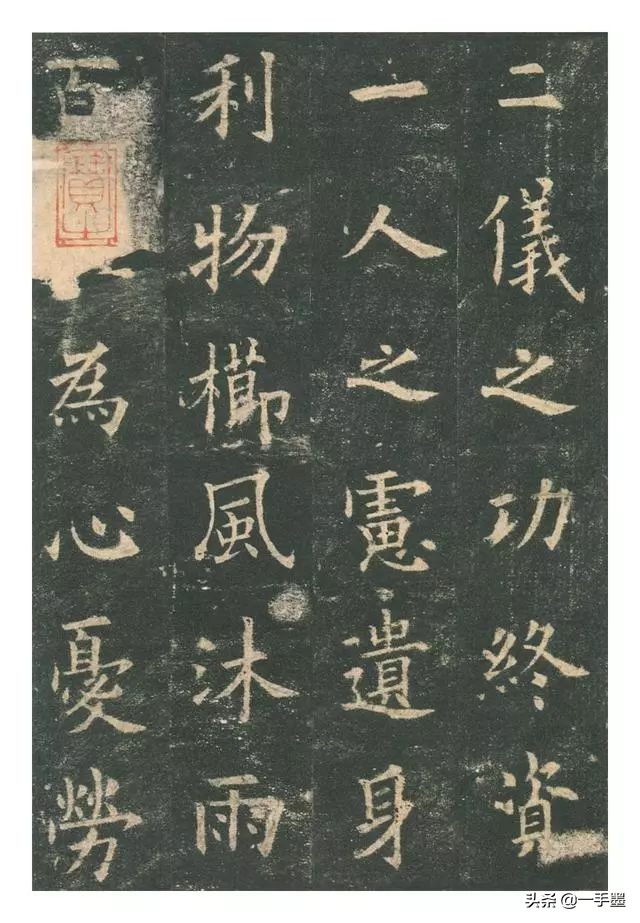 二儀之功終資
一人之慮遺身
利物櫛風沐雨
百為心憂勞
头条 @一手墨